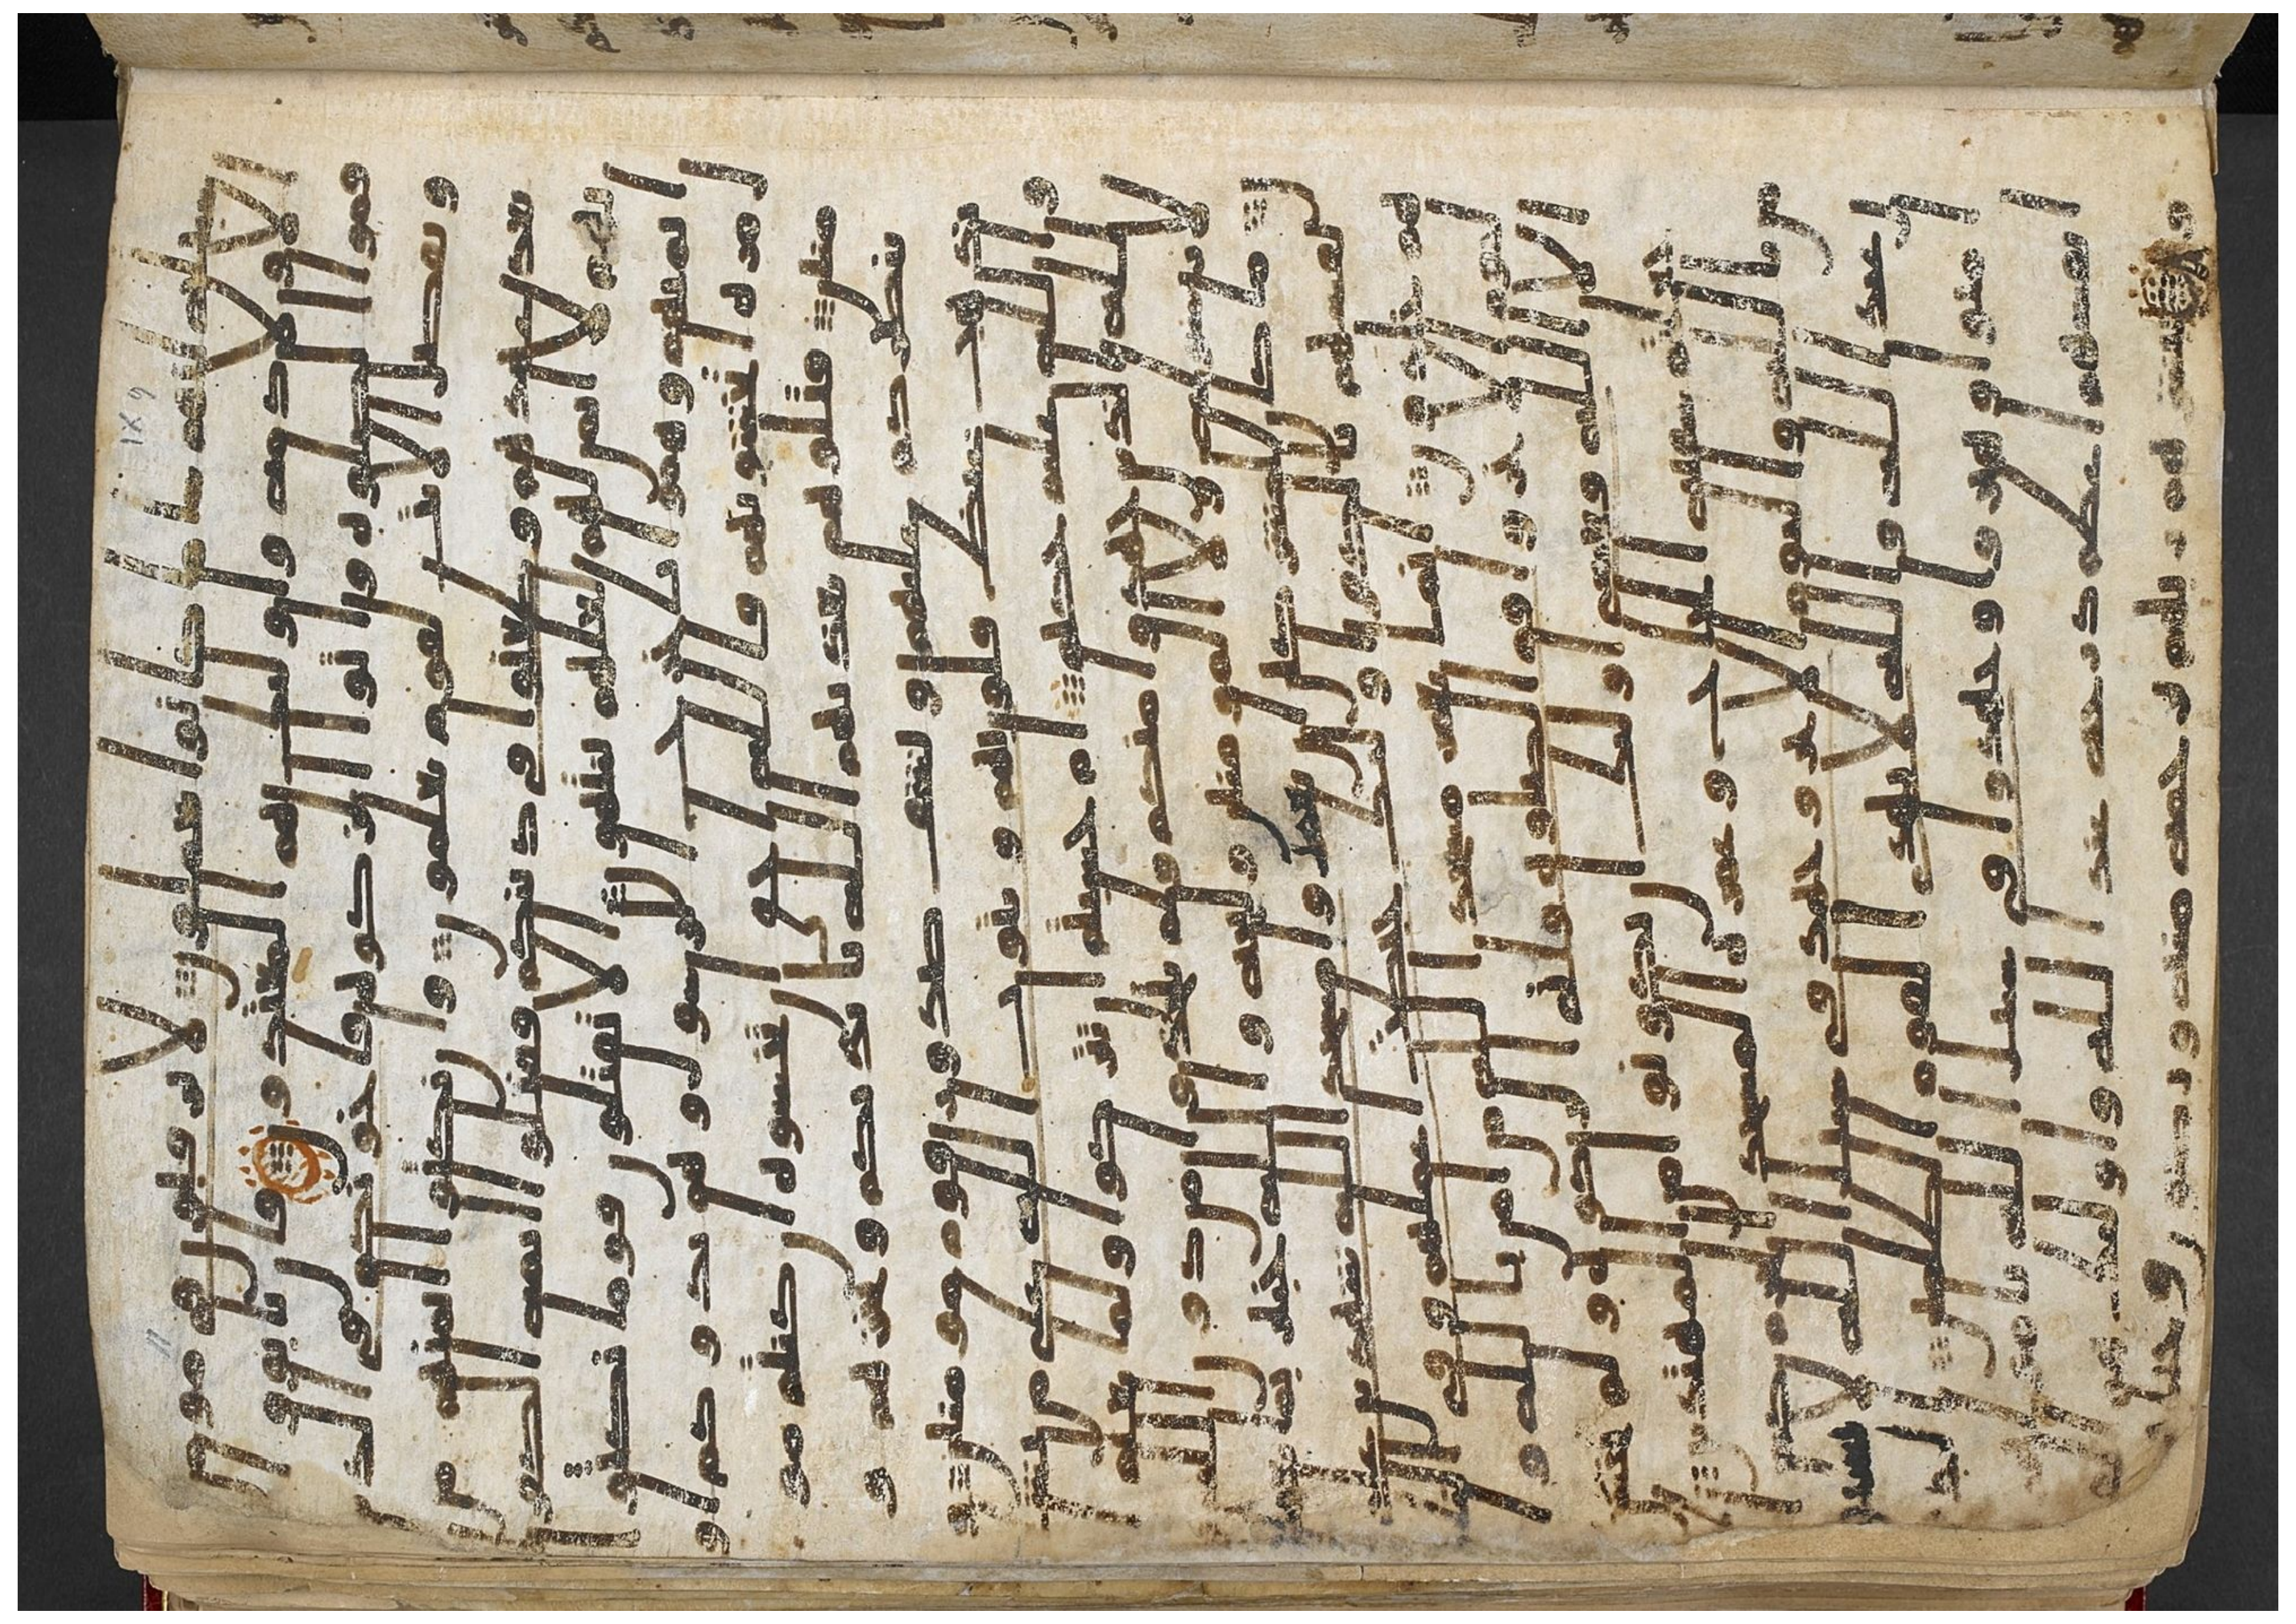 سبيله انهم سا ما كانوا يعملون لا يرقبون في مومن
الا ولا ذمه واوليك هم المعتدون فان تابوا
واقموا الصلوه واتوا الزكوه فاخونكم في الدين
ونفصل الايت لقوم يعلمون وان نكثوا ايمنهم من
بعد عهدهم وطعنوا في دينكم فقتلوا ايمه الكفر ا
نهم لا ايمن لهم لعلهم ينتهون الا تقتلون قوما نكثوا
ايمنهم وهموا باخرج الرسول وهم بدوكم او
ل مره اتخشونهم فالله احق ان تخشوه ان كنتم مو
منين قتلوهم يعذبهم الله بايديكم ويخزهم و
ينصركم عليهم ويشف صدور قوم مومنين و
يذهب غيظ قلوبهم ويتوب الله على من يشا
والله عليم حكيم ام حسبتم ان تتركوا ولما يعلم
الله الذين جهدوا منكم ولم يتخذوا من دون الله
ولا رسوله ولا المومنين وليجه والله خبير بما
تعملون ما كان للمشركين ان يعمروا مسجد الله
شهدين على انفسهم بالكفر اوليك حبطت اعما
لهم وفي النار هم خلدون انما يعمر مسجد الله من امن بالله
واليوم الاخر واقام الصلوه واتى الزكوه و
لم يخش الا الله فعسى اوليك ان يكونوا من المهتدين
اجعلتم سقيه الحاج وعمره المسجد الحرام
كمن امن بالله واليوم الاخر وجهد في سبيل الله لا يستون
عند الله والله لا يهدي القوم الظلمين
الذين امنوا وهجروا وجهدوا في سبيل الله باموالهم
وانفسهم اعظم درجه عند الله واوليك هم
الفيزون يبشرهم ربهم برحمه منه ورضون وجنت